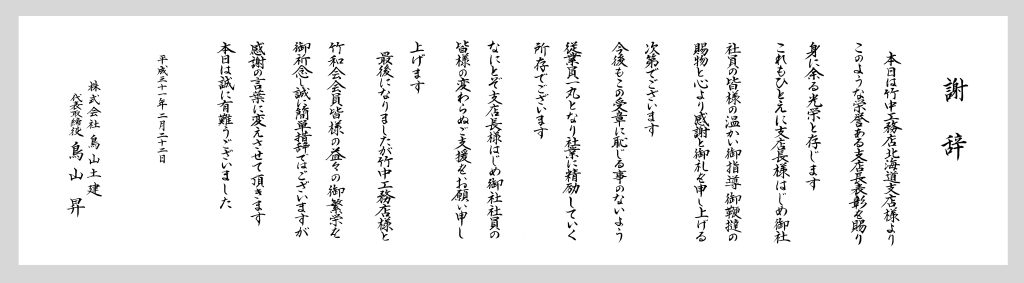 謝辞
本日は竹中工務店北海道支店様より
このような栄誉ある支店長表彰を賜り
身に余る光栄と存じます
これもひとえに支店長様はじめ御社
社員の皆様の温かい御指導御鞭撻の
賜物と心より感謝と御礼を申し上げる
次第でございます
今後もこの受章に恥じる事のないよう
従業員一丸となり社業に精励していく
所存でございます
なにとぞ支店長様はじめ御社社員の
皆様の変わらぬご支援をお願い申し
上げます
最後になりましたが竹中工務店様と
竹和会会員皆様の益々の御繁栄を
御祈念し誠に簡単措辞ではございますが
感謝の言葉に変えさせて頂きます
本日は誠に有難うございました
平成三十一年二月二十二日
株式会社鳥山土建
代表取締役鳥山昇